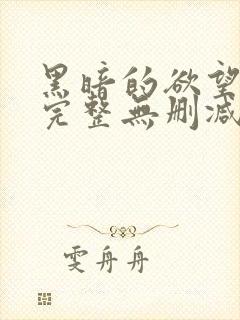 黑暗的欲望
完整無刪減
雯舟舟